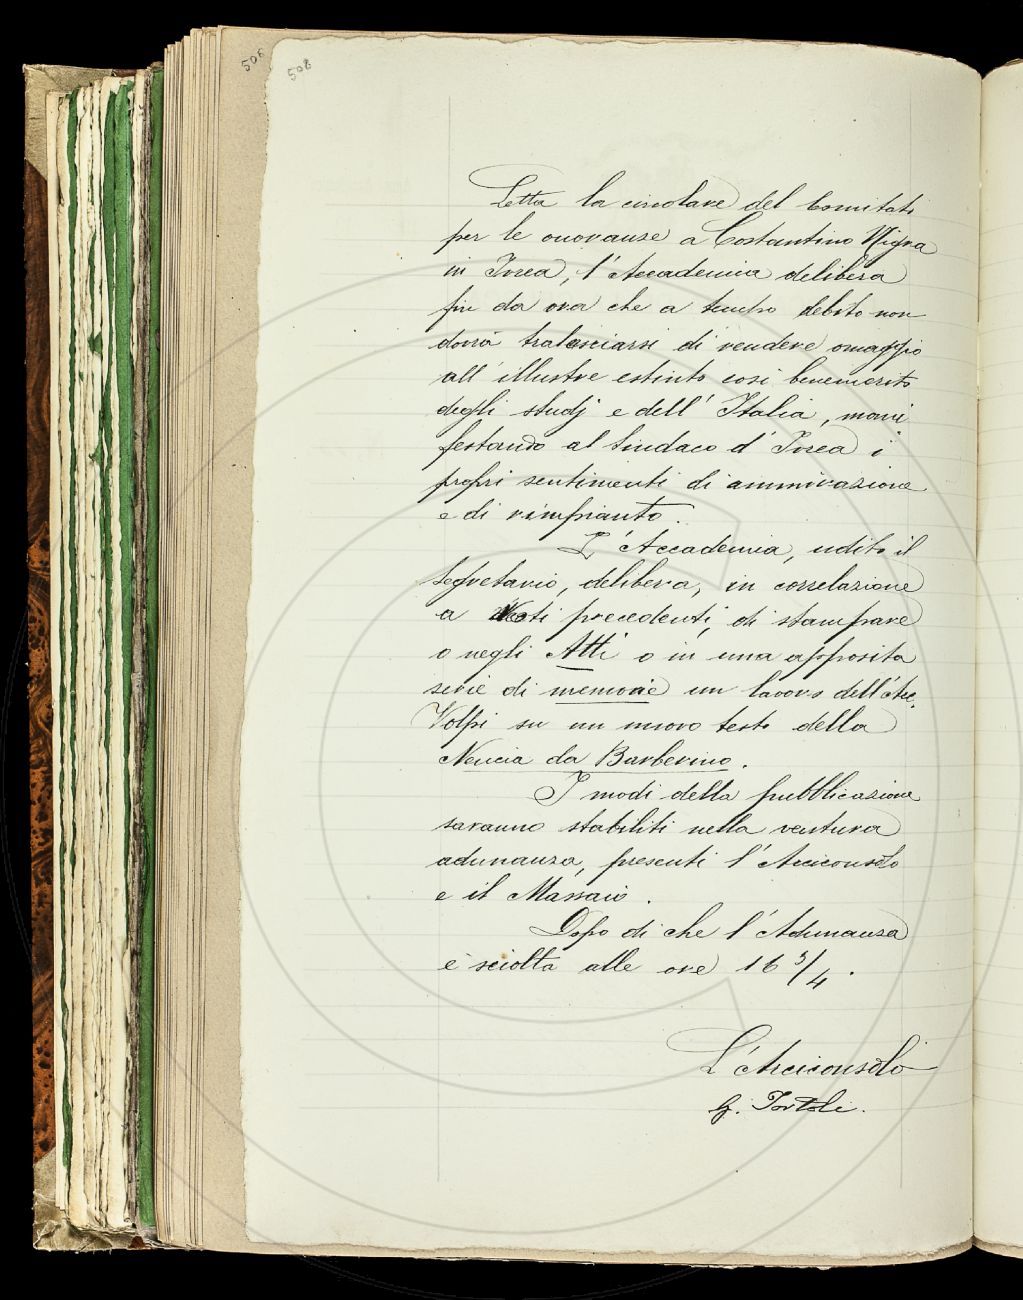 508
508
Letta la circolare del Comitato
per le onoranze a Costantino Nigra
in Ivrea, l'Accademia delibera
fin da ora che a tempo debito non
dovrà tralasciarsi di rendere omaggio
all'illustre estinto così benemerito
degli studj e dell'Italia, mani
festando al Sindaco d'Ivrea i
propri sentimenti di ammirazione
e di rimpianto.
L'Accademia, udito il
Segretario, delibera, in correlazione
a voti precedenti, di stampare
o negli Atti o in una apposita
serie di memorie un lavoro dell'Acc.
Volpi su un nuovo testo della
Nencia da Barberino.
I modi della pubblicazione
saranno stabiliti nella ventura
adunanza, presenti l'Arciconsolo
e il Massaio.
Dopo di che l'Adunanza
è sciolta alle ore 16 3/4.
L'Arciconsolo
G. Tortoli.